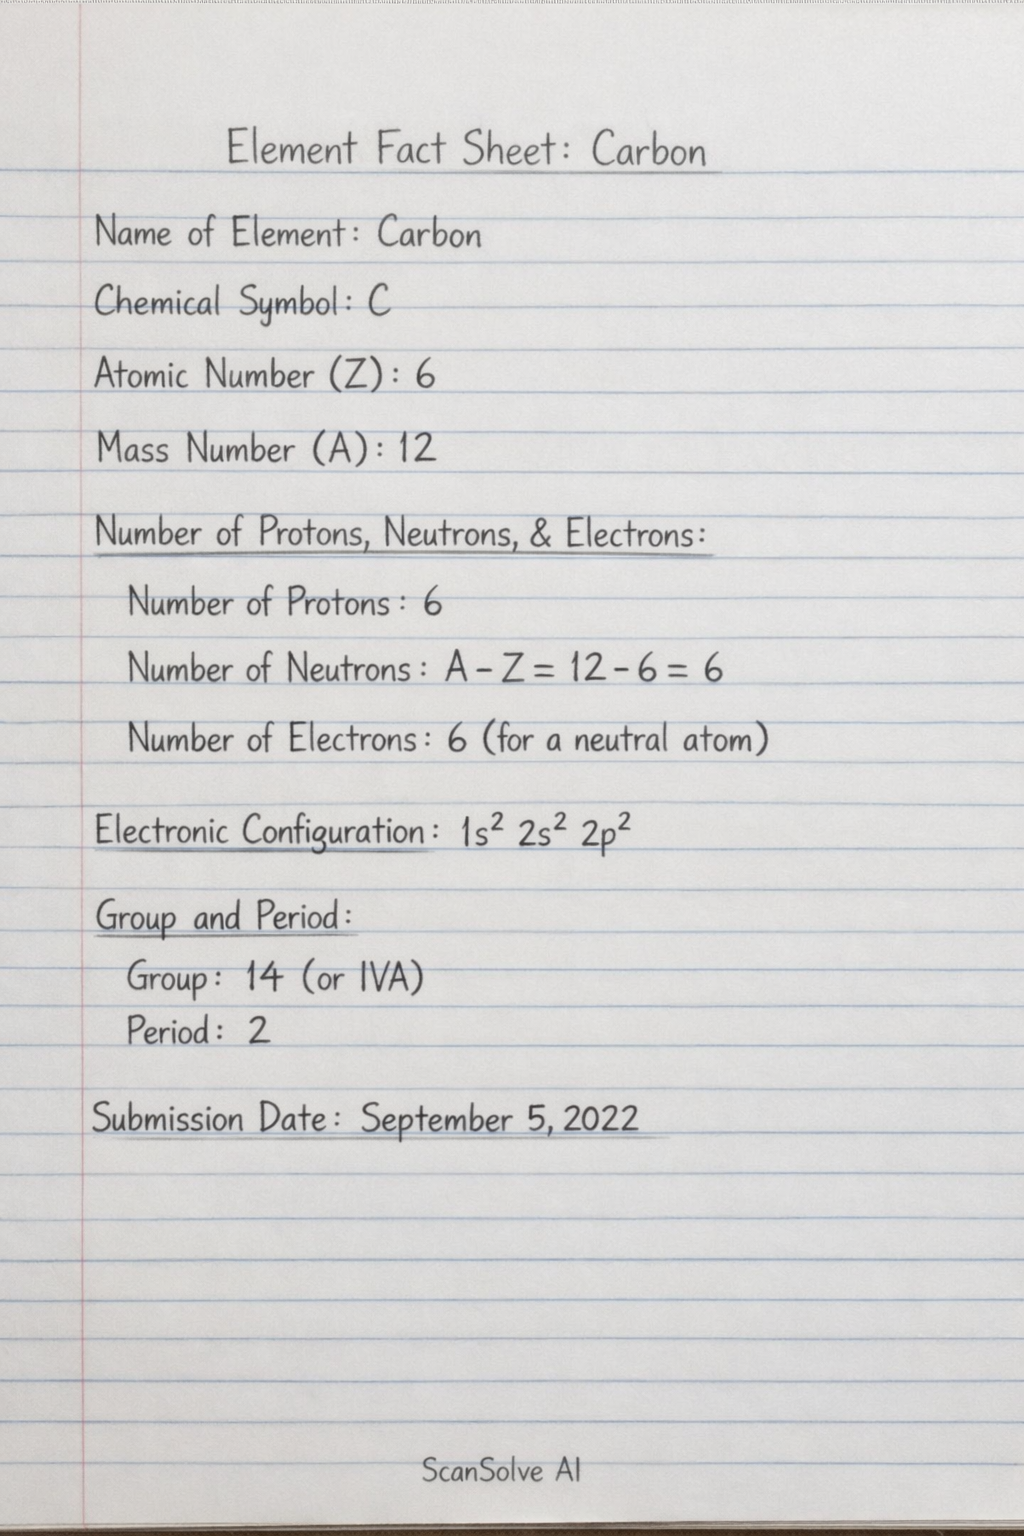 Element Fact Sheet: Carbon
Name of Element: Carbon
Chemical Symbol: C
Atomic Number (Z): 6
Mass Number (A): 12
Number of Protons, Neutrons, & Electrons:
Number of Protons: 6
Number of Neutrons: A - Z = 12 - 6 = 6
Number of Electrons: 6 (for a neutral atom)
Electronic Configuration: 1s² 2s² 2p²
Group and Period:
Group: 14 (or IVA)
Period: 2
Submission Date: September 5, 2022
ScanSolve AI